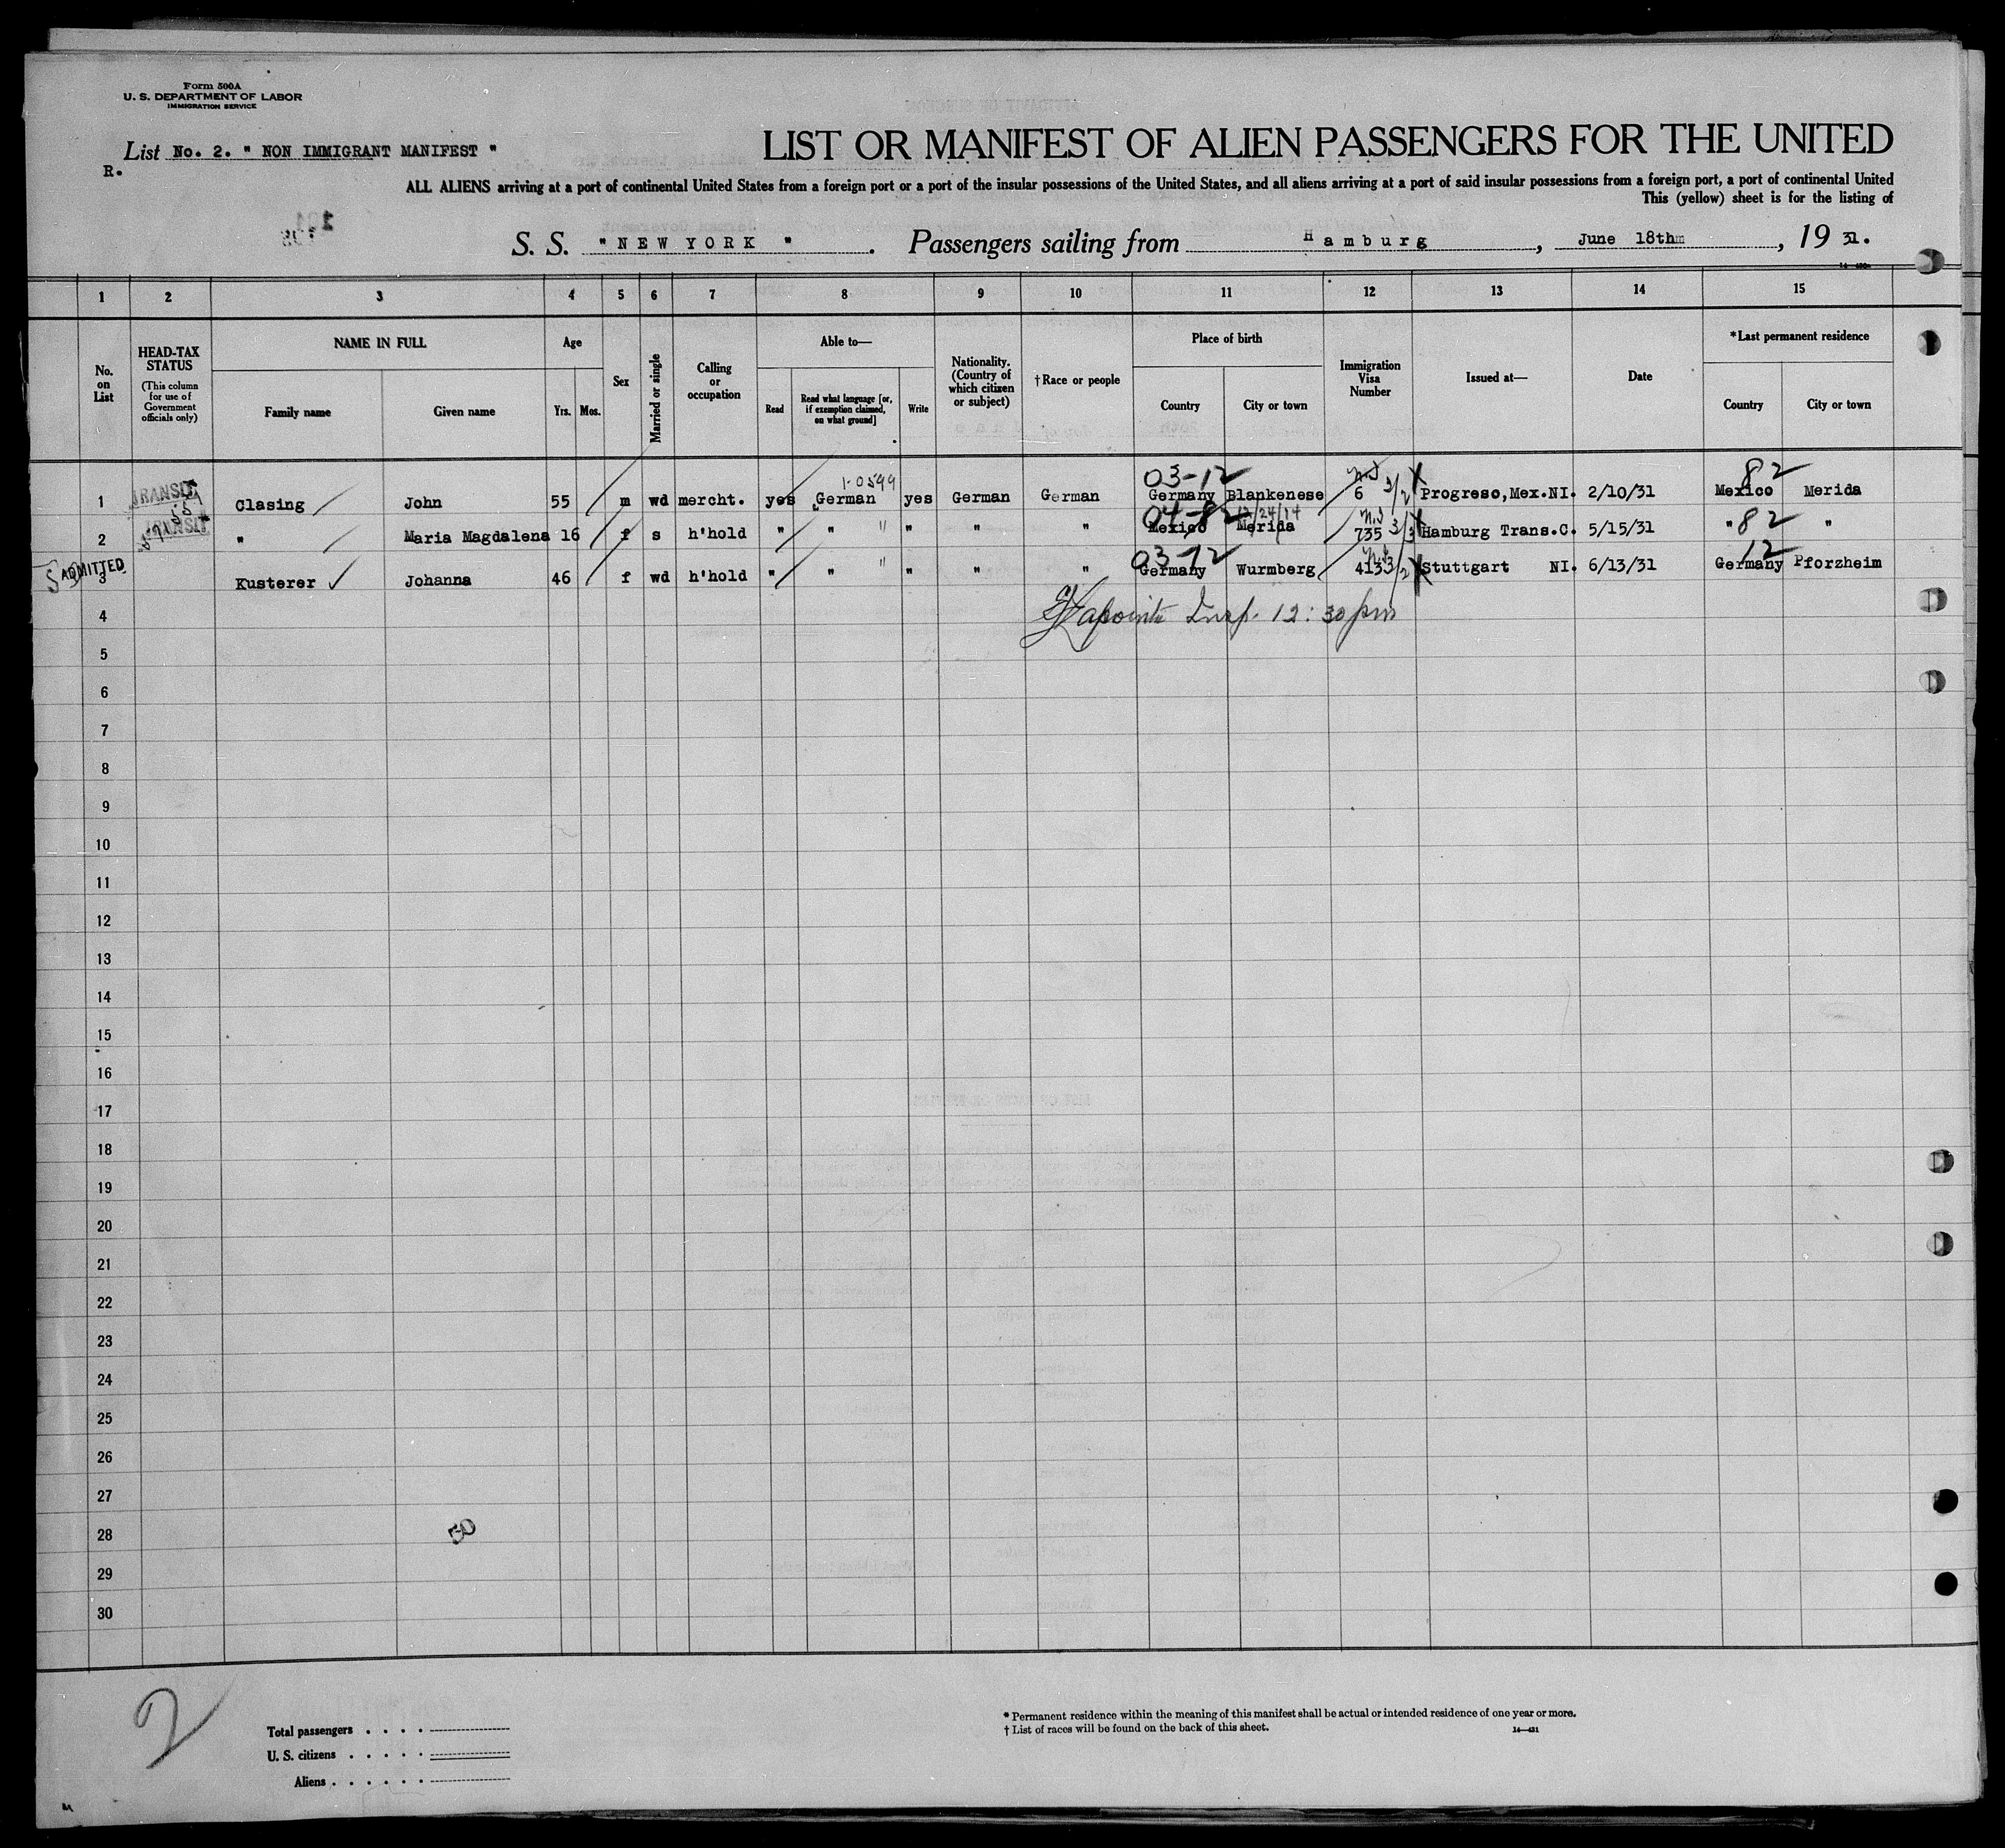 Form 500A
U. S. DEPARTMENT OF LABOR
IMMIGRATION SERVICE
List No. 2. " NON IMMIGRANT MANIFEST "
R.
LIST OR MANIFEST OF ALIEN PASSENGERS FOR THE UNITED
ALL ALIENS arriving at a port of continental United States from a foreign port or a port of the insular possessions of the United States, and all aliens arriving at a port of said insular possessions from a foreign port, a port of continental United
This (yellow) sheet is for the listing of
S. S. " NEW YORK " . Passengers sailing from Hamburg , June 18th , 19 31.
1 2 3 4 5 6 7 8 9 10 11 12 13 14 15
No. on List
HEAD-TAX STATUS
(This column for use of Government officials only)
NAME IN FULL
Family name Given name
Age
Yrs. Mos.
Sex
Married or single
Calling or occupation
Able to—
Read Read what language [or, if exemption claimed, on what ground] Write
Nationality. (Country of which citizen or subject)
† Race or people
Place of birth
Country City or town
Immigration Visa Number
Issued at—
Date
*Last permanent residence
Country City or town
1-0599 03-12 82
1 TRANSIT Clasing John 55 m wd mercht. yes German yes German German Germany Blankenese 6 3/2 Progreso,Mex.NI. 2/10/31 Mexico Merida
04-82 12/24/14
2 TRANSIT " Maria Magdalena 16 f s h'hold " " " " " Mexico Merida 735 3/3 Hamburg Trans.C. 5/15/31 " 82 "
03-12 12
3 ADMITTED Kusterer Johanna 46 f wd h'hold " " " " " Germany Wurmberg 4133 /2 Stuttgart NI. 6/13/31 Germany Pforzheim
4 Lapointe Insp. 12:30 pm
5
6
7
8
9
10
11
12
13
14
15
16
17
18
19
20
21
22
23
24
25
26
27
28 50
29
30
2
Total passengers . . . .
U. S. citizens . . . . .
Aliens . . . . . .
* Permanent residence within the meaning of this manifest shall be actual or intended residence of one year or more.
† List of races will be found on the back of this sheet.
14—431